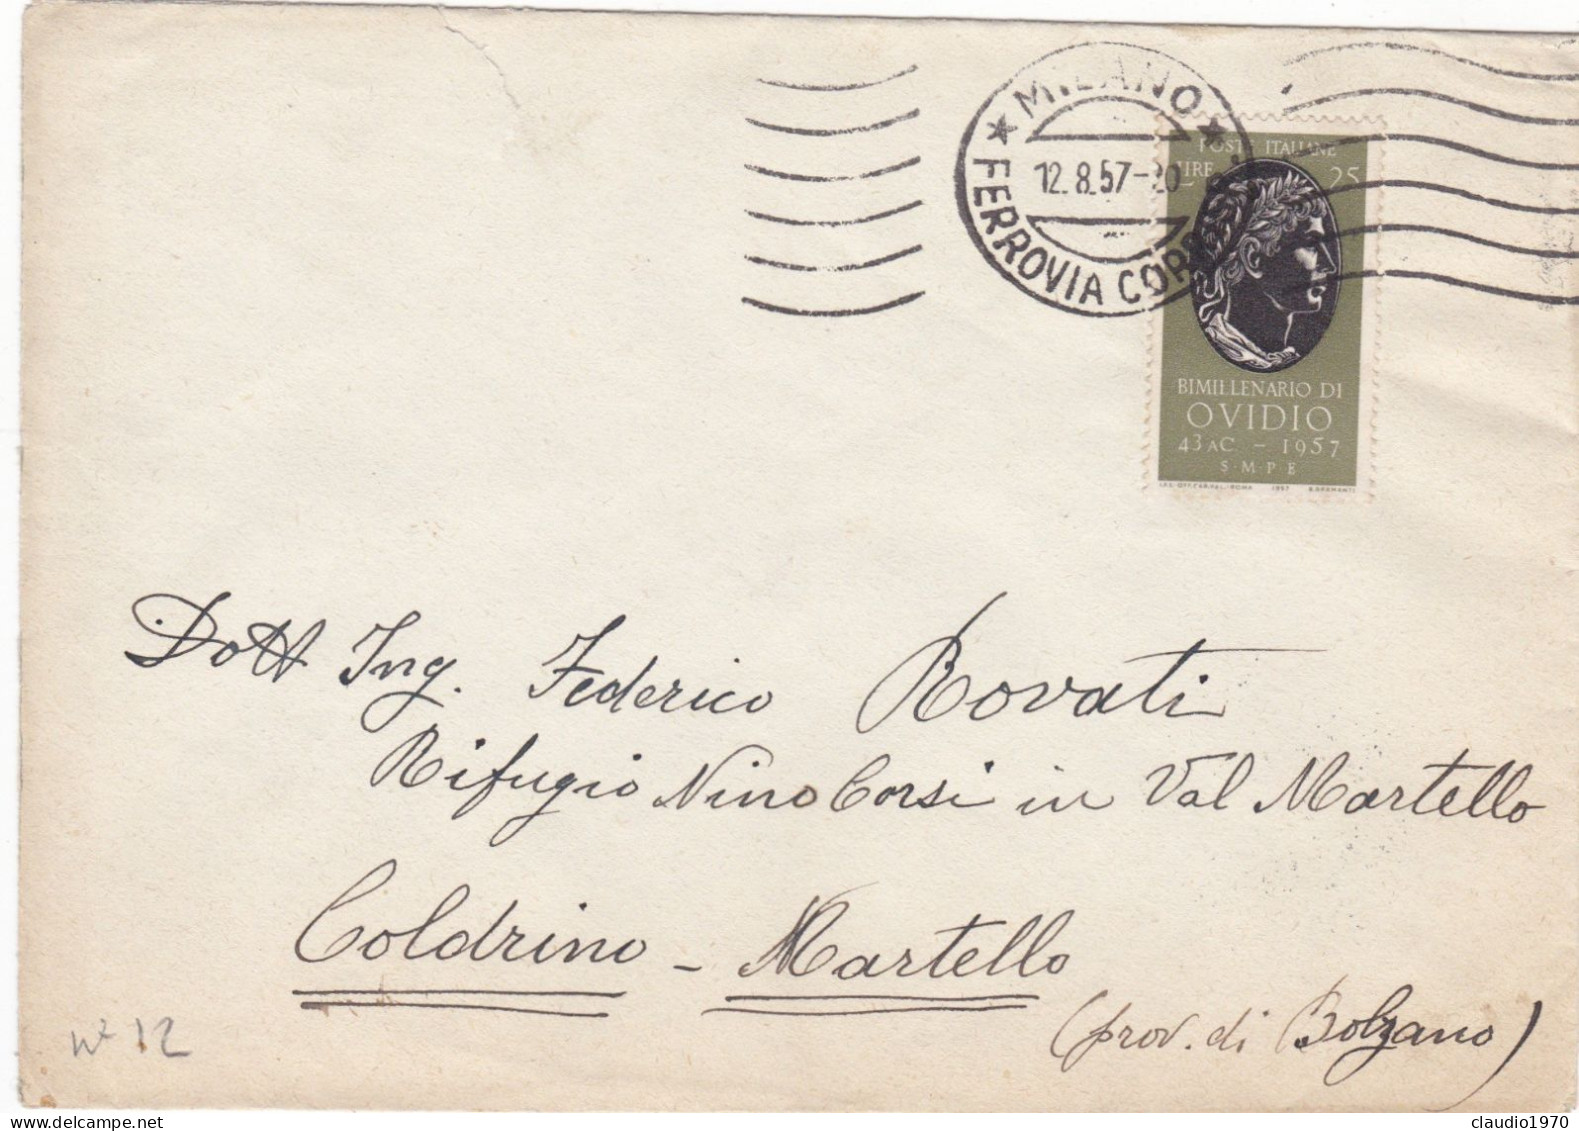 MILANO
12.8.57-20
FERROVIA CORR
POSTE ITALIANE
LIRE 25
BIMILLENARIO DI
OVIDIO
43 AC - 1957
S·M·P·E
1957
Dott Ing. Federico Rovati
Rifugio Nino Corsi in Val Martello
Coldrino - Martello
(prov. di Bolzano)
12
www.delcampe.net
claudio1970